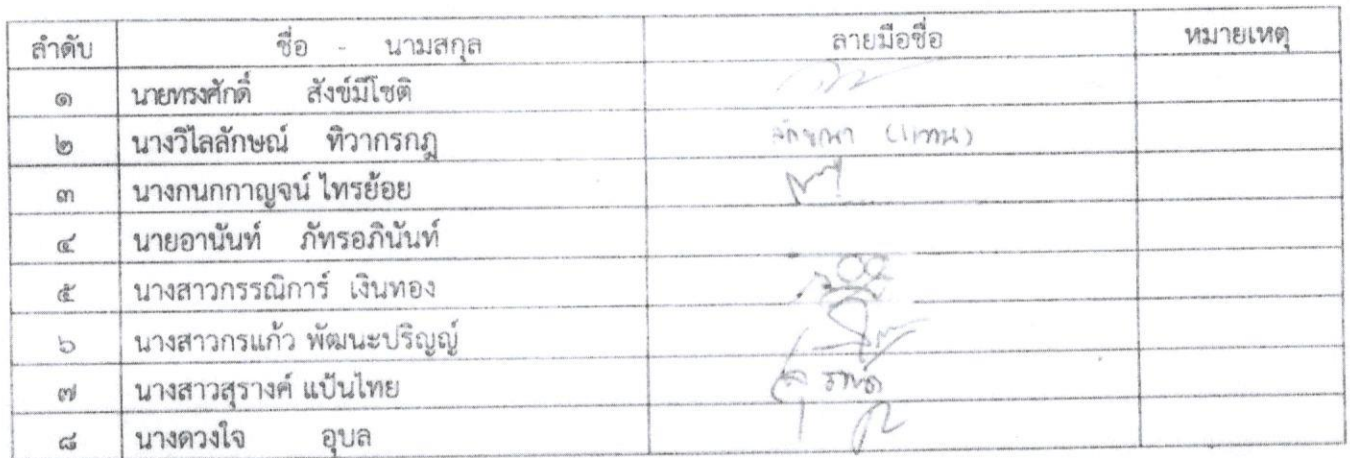 ลำดับ ชื่อ - นามสกุล ลายมือชื่อ หมายเหตุ
๑ นายทรงศักดิ์ สังข์มีโชติ
๒ นางวิไลลักษณ์ ทิวากรกฎ (แทน)
๓ นางกนกกาญจน์ ไทรย้อย
๔ นายอานันท์ ภัทรอภินันท์
๕ นางสาวกรรณิการ์ เงินทอง
๖ นางสาวกรแก้ว พัฒนะปริญญ์
๗ นางสาวสุรางค์ แป้นไทย
๘ นางดวงใจ อุบล